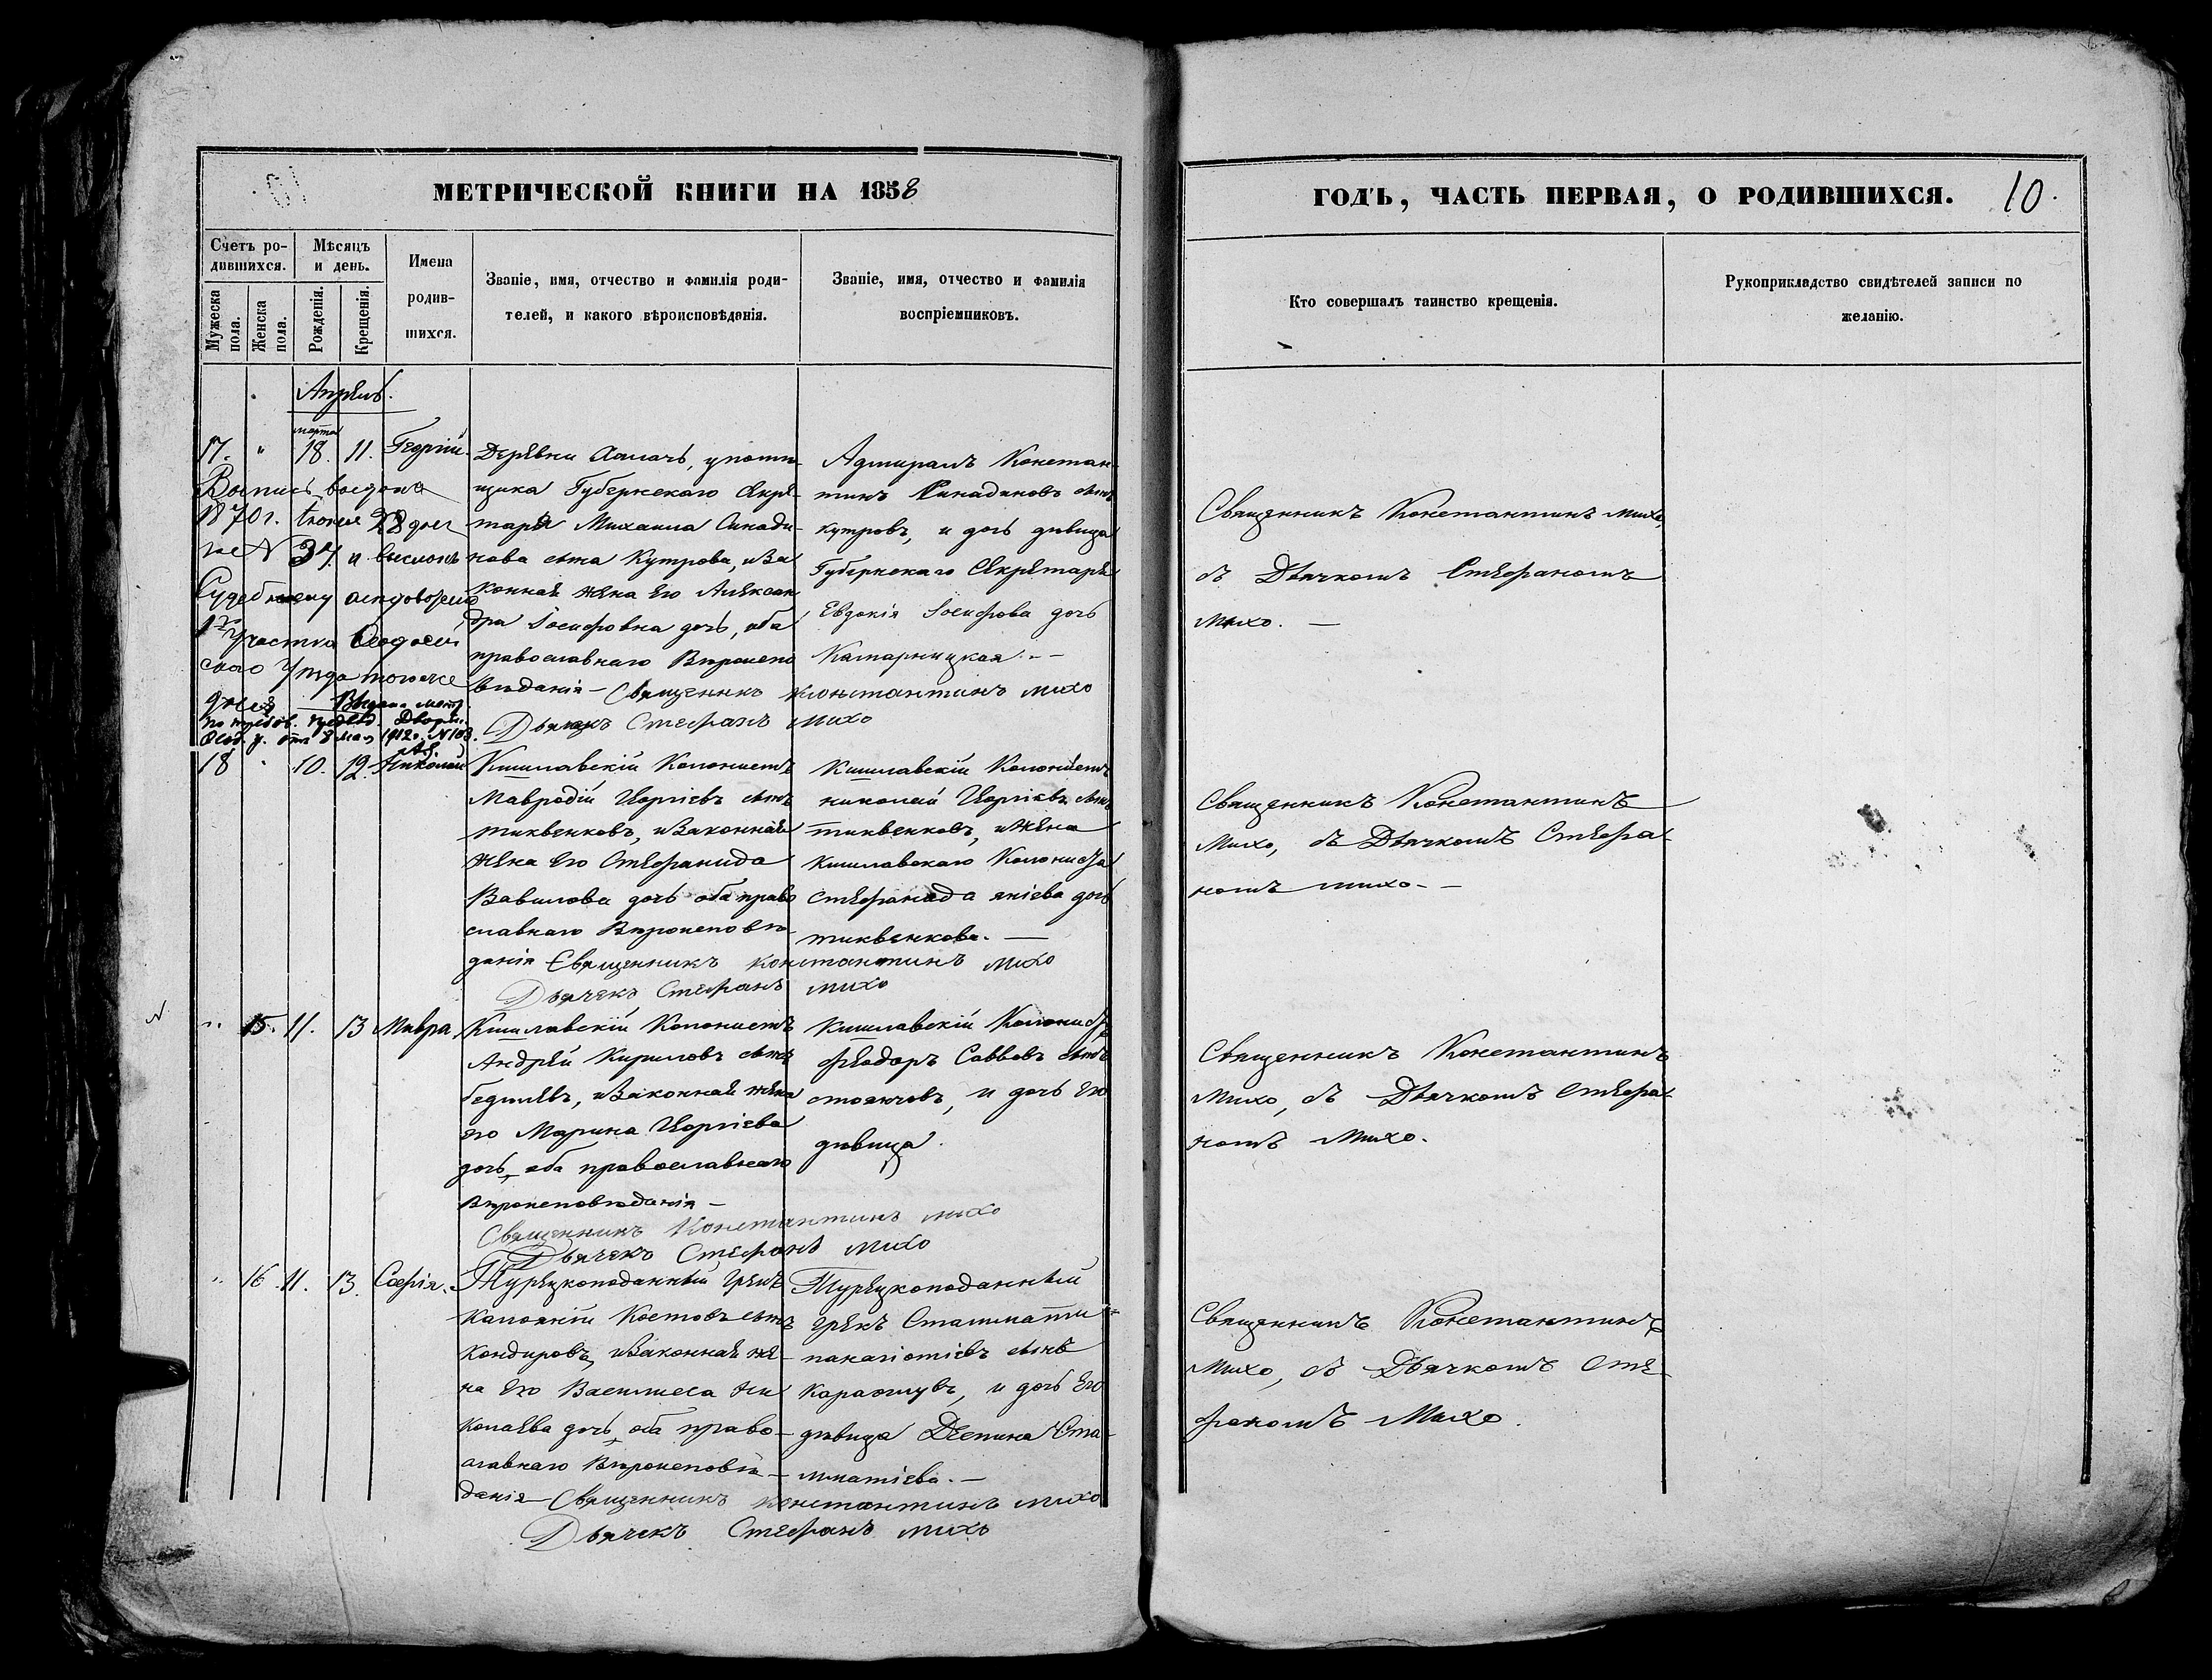 МЕТРИЧЕСКОЙ КНИГИ НА 1858
ГОДЪ, ЧАСТЬ ПЕРВАЯ, О РОДИВШИХСЯ. 10.
Счетъ ро-
дившихся.
Мужеска
пола.
Женска
пола.
Мѣсяцъ
и день.
Рожденія.
Крещенія.
Имена
родив-
шихся.
Званіе, имя, отчество и фамилія роди-
телей, и какого вѣроисповѣданія.
Званіе, имя, отчество и фамилія
воспріемниковъ.
Кто совершалъ таинство крещенія.
Рукоприкладство свидѣтелей записи по
желанію.
Апрѣль.
марта
17. " 18. 11. Георгій.
Выпись выдана
1870 г. Іюня 28 дня
за N 37. и
Судебному
1го участка Ѳеодосій
скаго Уѣзда того же
дня Выдана метр.
по требов. предвод. Дворян.
Ѳеод. у. отъ 8 мая 1912 г. N 103.
Деревни помѣ-
щика Губернскаго Секре-
таря Михаила Синади-
нова сына Кутрова, и за
конная жена его Алексан
дра Іосифовна дочь, оба
православнаго Вѣроиспо
вѣданія - Священникъ Константинъ Михо
Дьячекъ Стефанъ Михо
Адмиралъ Констан
тинъ Синадиновъ сынъ
Кутровъ, и дочь дѣвица
Губернскаго Секретаря
Евдокія Іосифова дочь
Камарницкая. -
Священникъ Константинъ Михо,
съ Дьячкомъ Стефаномъ
Михо. -
18 " 10. 12. Николай
Кишлавскій Колонистъ
Мавродій Георгіевъ сынъ
тиквенковъ, и законная
жена его Стефанида
Вавилова дочь оба право
славнаго Вѣроисповѣ-
данія Священникъ Константинъ Михо
Дьячекъ Стефанъ Михо
Кишлавскій Колонистъ
николай Георгіевъ сынъ
тиквенковъ, и жена
Кишлавскаго Колониста
дочь
тиквенкова. -
Священникъ Константинъ
Михо, съ Дьячкомъ Стефа-
номъ Михо. -
N
" 15. 11. 13 Мавра,
Кишлавскій Колонистъ
Андрей Кириловъ сынъ
и законная жена
его Марина Георгіева
дочь, оба православнаго
Вѣроисповѣданія -
Священникъ Константинъ Михо
Дьячекъ Стефанъ Михо
Кишлавскій Колонистъ
Феодоръ Саввовъ сынъ
стоянчовъ, и дочь его
дѣвица.
Священникъ Константинъ
Михо, съ Дьячкомъ Стефа-
номъ Михо.
" 16. 11. 13. Софія.
Турецкоподанный грекъ
Калоянъ Костовъ сынъ
Кондировъ, и законная же-
на его Василиса Ни
колаева дочь, оба право-
славнаго Вѣроисповѣ-
данія - Священникъ Константинъ Михо
Дьячекъ Стефанъ Михо
Турецкоподанный
грекъ Стаммати
панагіотіевъ сынъ
и дочь его
дѣвица Деспина Ста-
мматіева. -
Священникъ Константинъ
Михо, съ Дьячкомъ Сте-
фаномъ Михо.